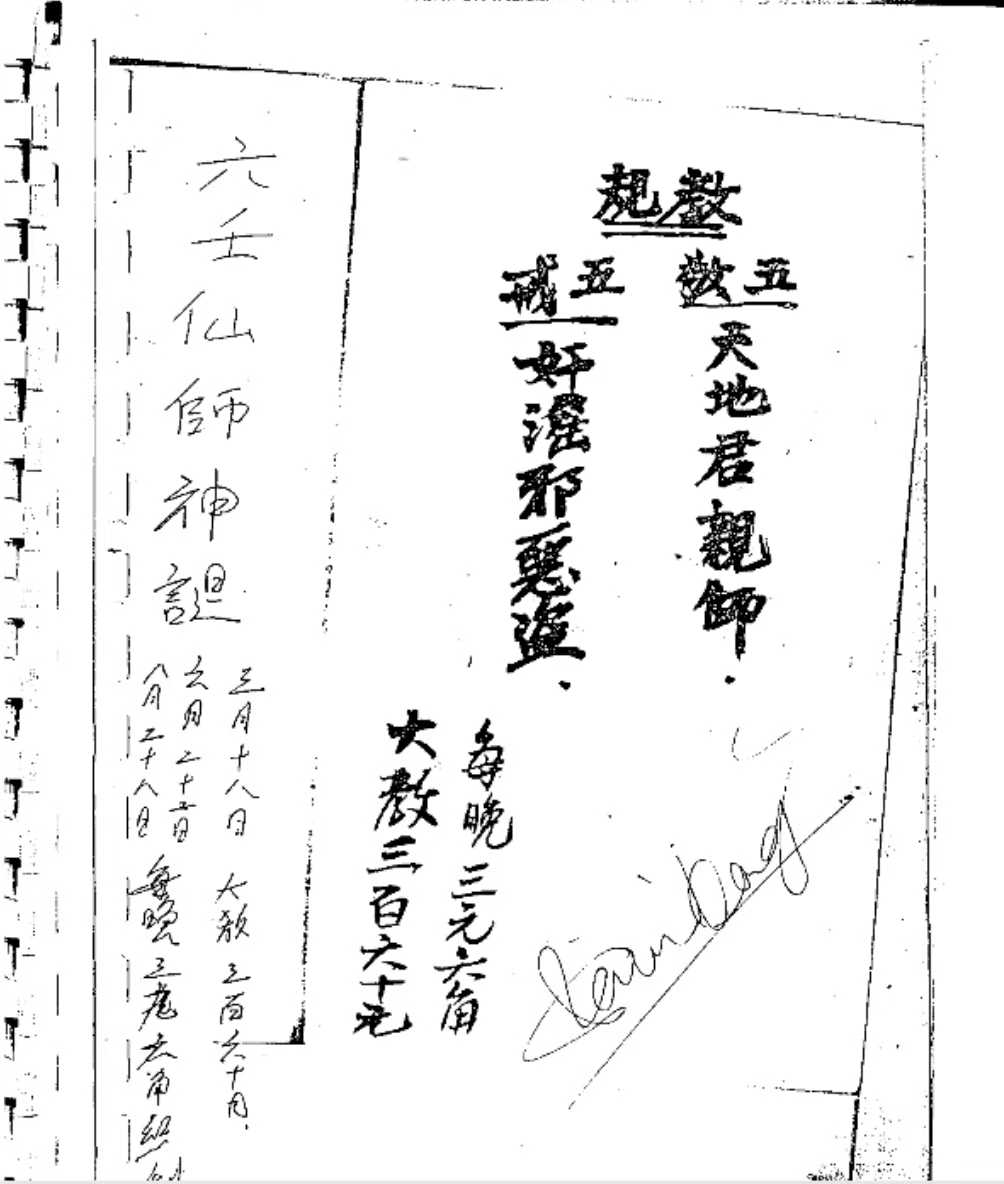 教規
五敬
天地君親師.
五戒
奸滛邪惡盜.
每晚三元六角
大教三百六十元
六壬仙師神誕
三月十八日
六月二十二日
八月二十八日
大教三百六十元.
每晚三元六角